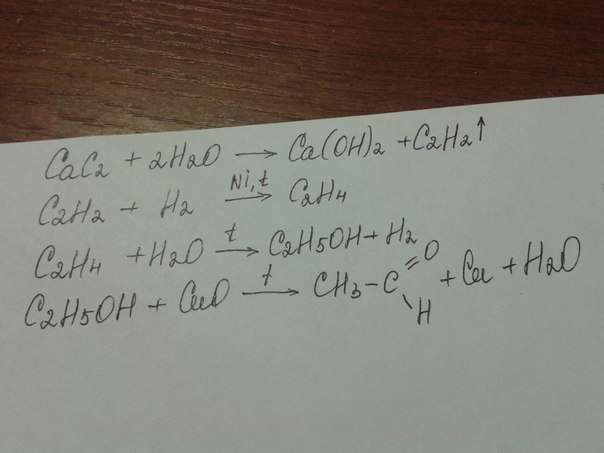 CaC2 + 2H2O → Ca(OH)2 + C2H2↑
C2H2 + H2 Ni, t → C2H4
C2H4 + H2O t → C2H5OH + H2
C2H5OH + CuO t → CH3-C=O\H + Cu + H2O